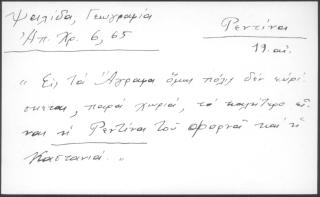 Ψαλίδα, Γεωγραφία
Ἀπ. Χρ. 6, 65
Ρεντίνα
19. αἰ.
" Εἰς τὰ Ἄγραφα ὅμως πόλις δὲν εὑρί-
σκεται, παρὰ χωριά, τὰ καλήτερα εἶ-
ναι ἡ Ρεντίνα τοῦ καὶ ἡ
Καστανιά. "